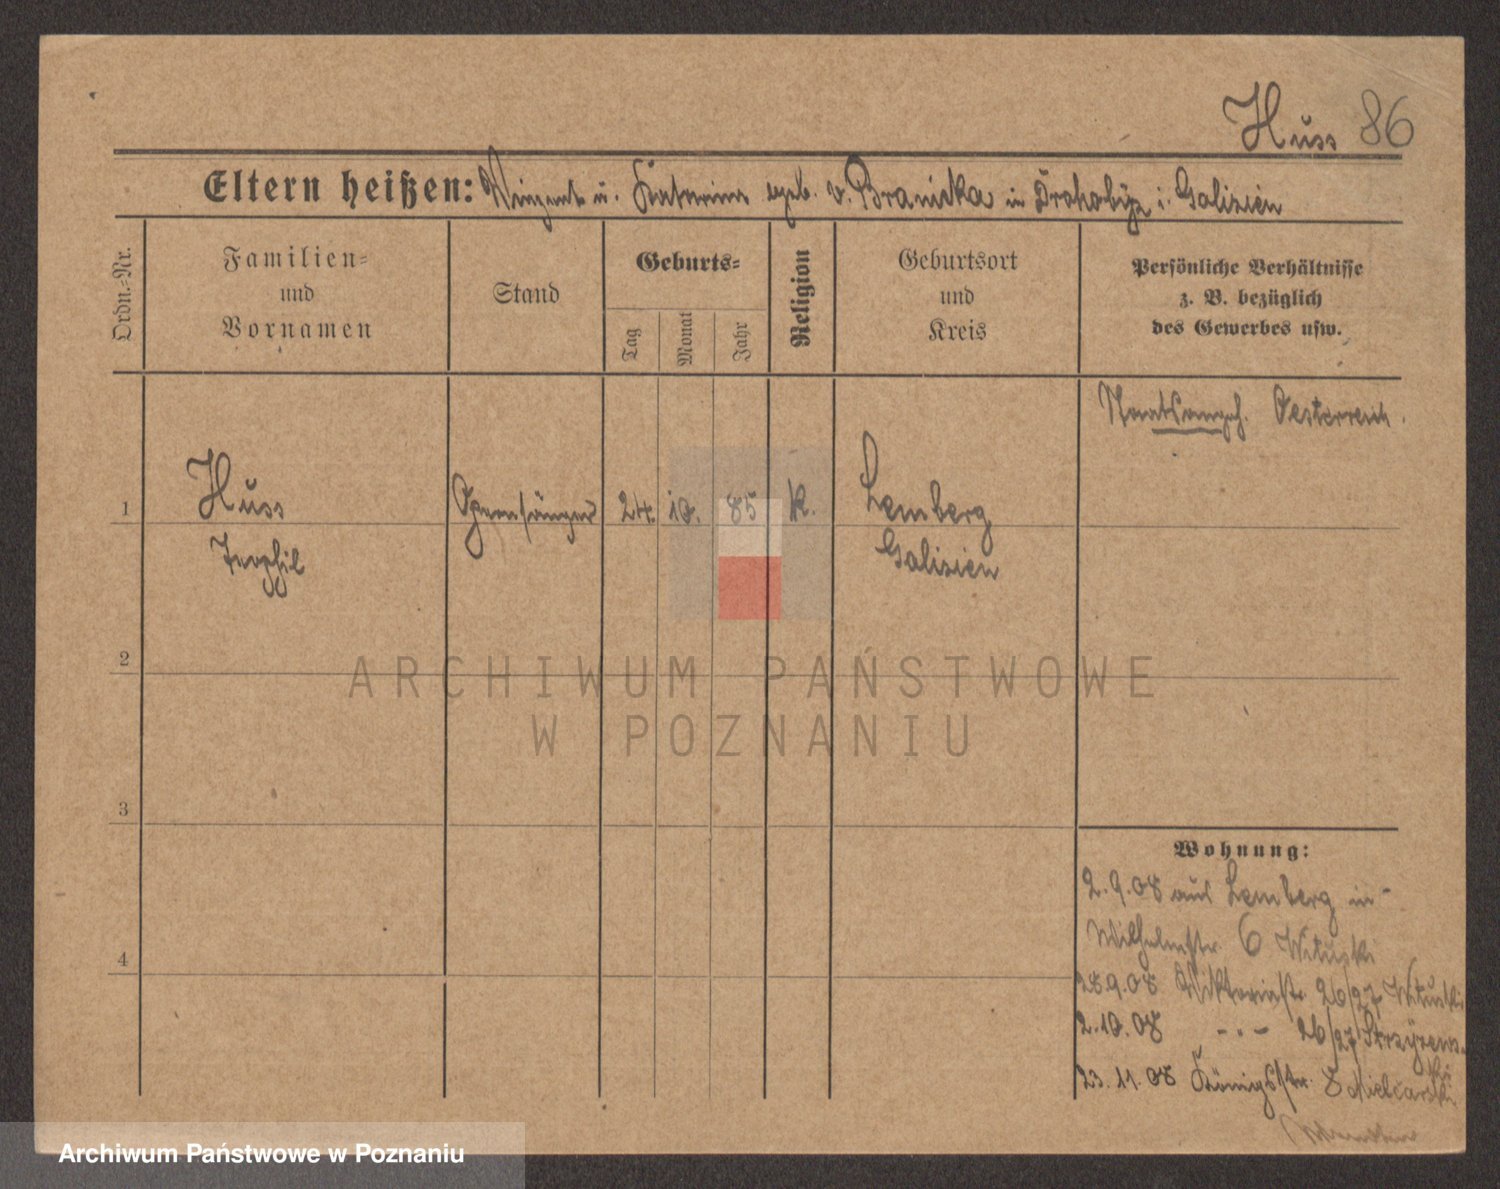 Huss 86
Eltern heißen: Winzent u. Katarina geb. v. Branicka in Drohobyz i. Galizien
Ordn.-Nr.
Familien-
und
Vornamen
Stand
Geburts-
Tag
Monat
Jahr
Religion
Geburtsort
und
Kreis
Persönliche Verhältnisse
z. B. bezüglich
des Gewerbes usw.
Staatsangeh. Oesterreich.
1
Huss
Teophil
Opernsänger
24. 10. 85
k.
Lemberg
Galizien
2
ARCHIWUM PAŃSTWOWE
W POZNANIU
3
4
Wohnung:
2.9.08 aus Lemberg in
Wilhelmstr. 6 Wituski
28.9.08 Viktoriastr. 26/27 Wituski
2.10.08 - " - 26/27
23.11.08 Königsstr. 8
Archiwum Państwowe w Poznaniu